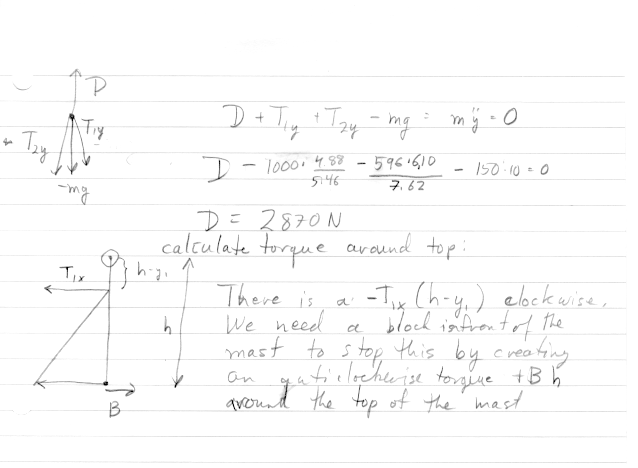 D
T1y
T2y
-mg
D + T1y + T2y - mg = mÿ = 0
D - 1000 · 4.88/5.46 - 596·6,10/7.62 - 150·10 = 0
D = 2870 N
calculate torque around top:
T1x
h-y1
h
B
There is a -T1x (h-y1) clockwise.
We need a block infront of the
mast to stop this by creating
an anticlockwise torque +B h
around the top of the mast